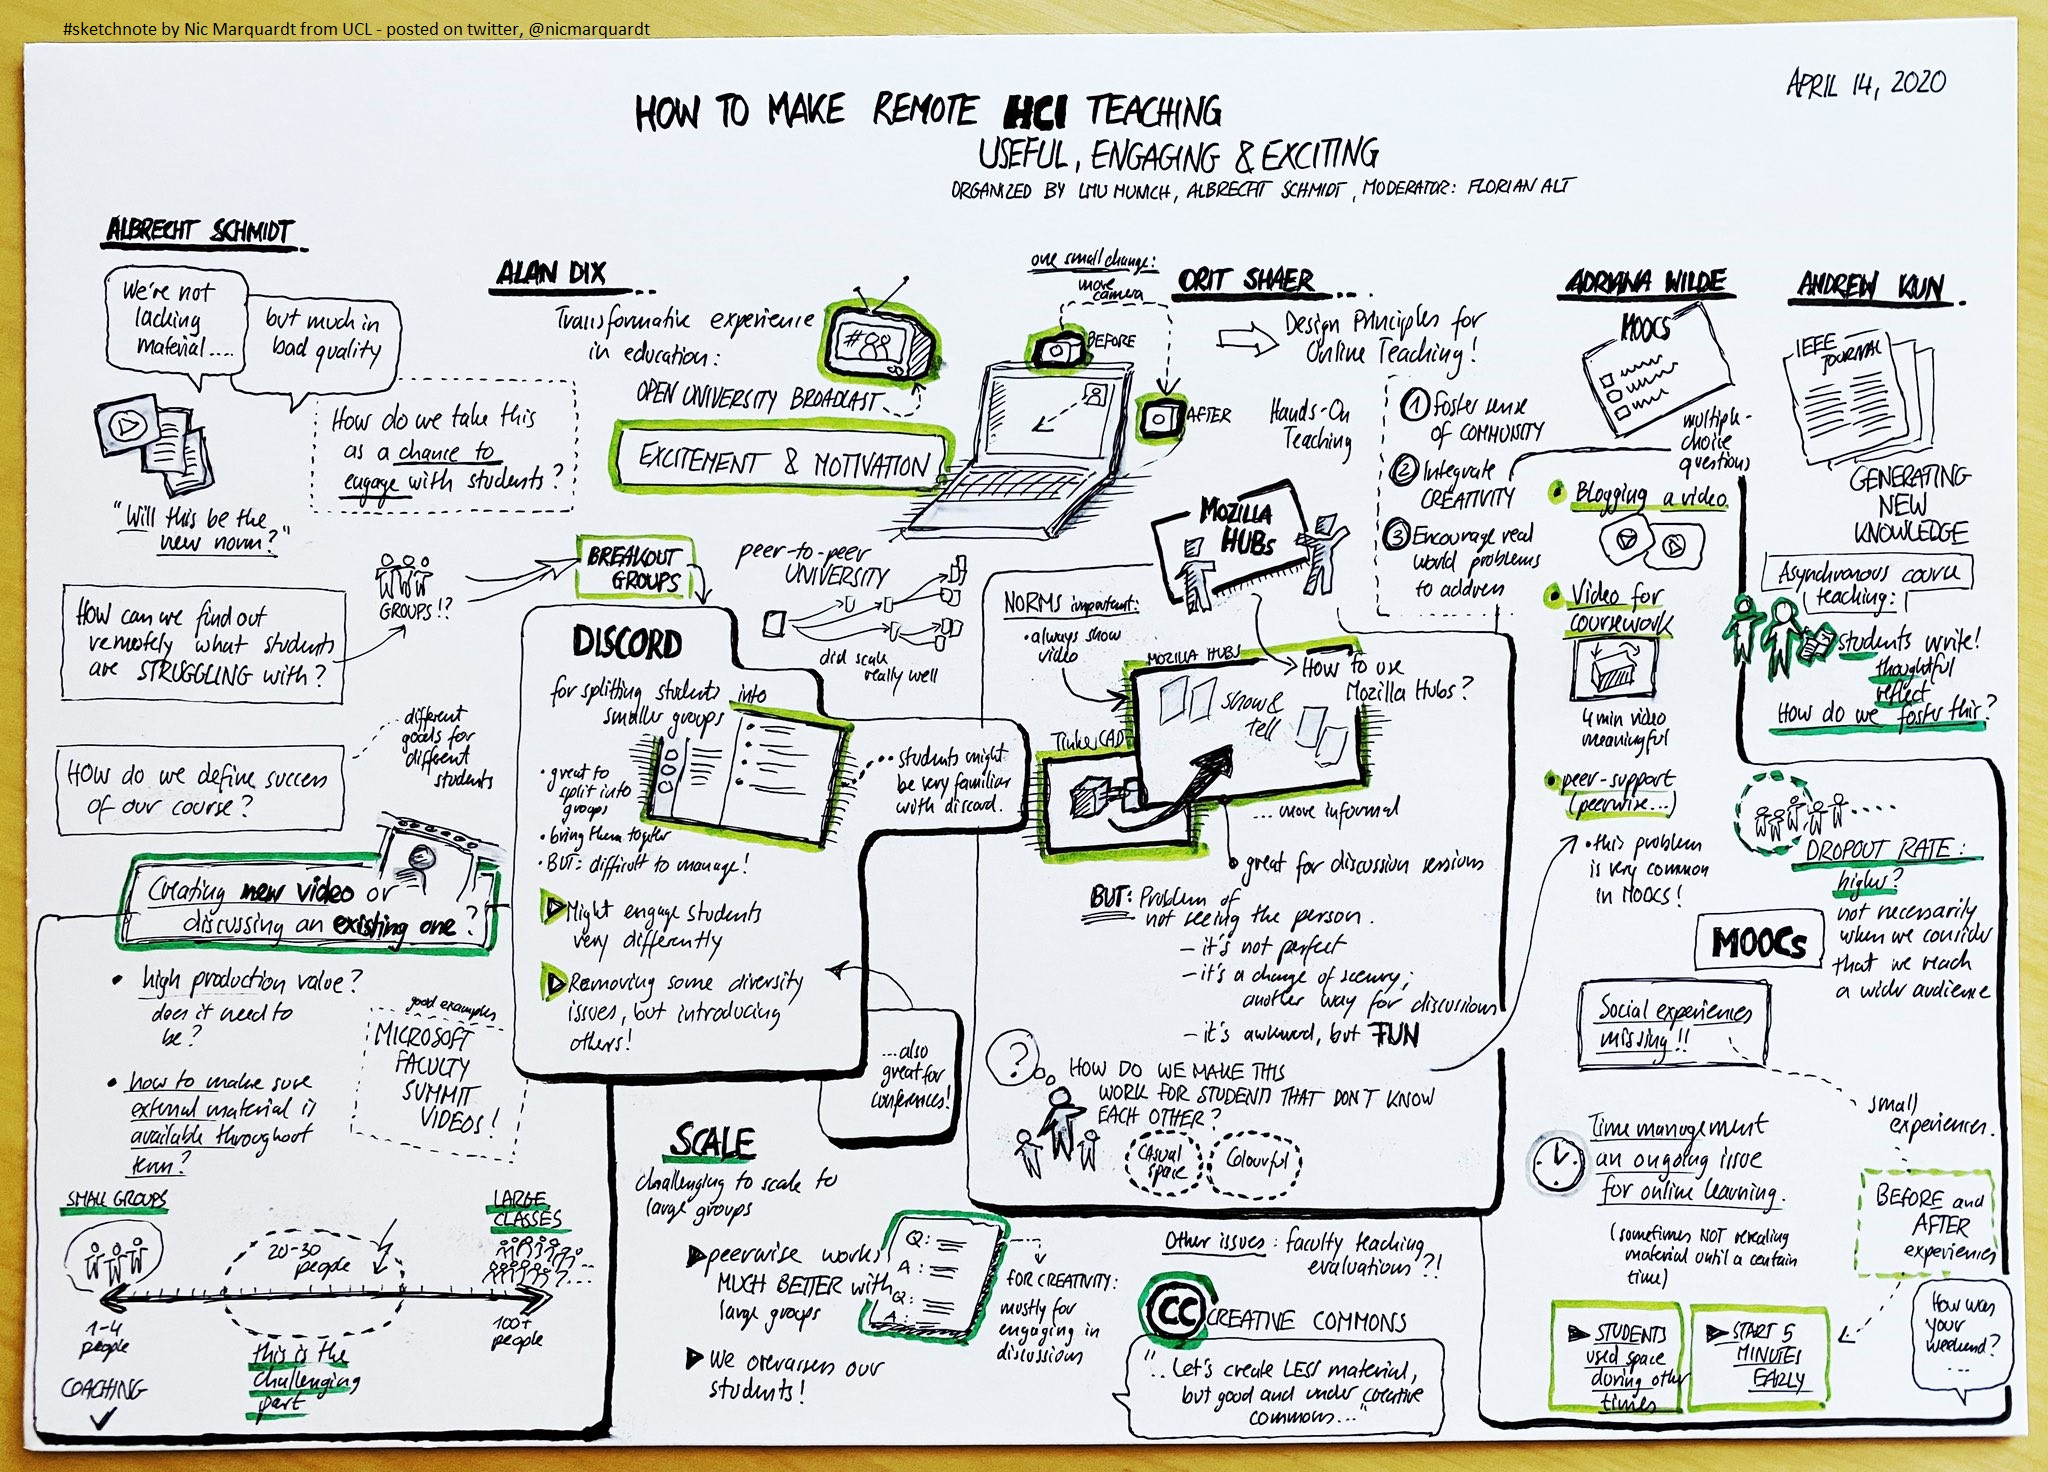 #sketchnote by Nic Marquardt from UCL - posted on twitter, @nicmarquardt
APRIL 14, 2020
HOW TO MAKE REMOTE HCI TEACHING
USEFUL, ENGAGING & EXCITING
ORGANIZED BY LMU MUNICH, ALBRECHT SCHMIDT, MODERATOR: FLORIAN ALT
ALBRECHT SCHMIDT
We're not
lacking
material....
but much in
bad quality
How do we take this
as a chance to
engage with students?
"Will this be the
new norm?"
HOW can we find out
remotely what students
are STRUGGLING with?
GROUPS!?
HOW do we define success
of our course?
different
goals for
different
students
Creating new video or
discussing an existing one?
• high production value?
does it need to
be?
• how to make sure
external material is
available throughout
term?
good examples
MICROSOFT
FACULTY
SUMMIT
VIDEOS!
SMALL GROUPS
LARGE
CLASSES
20-30
people
1-4
people
100+
people
this is the
challenging
part
COACHING
ALAN DIX
Transformative experience
in education:
OPEN UNIVERSITY BROADCAST
EXCITEMENT & MOTIVATION
BREAKOUT
GROUPS
peer-to-peer
UNIVERSITY
did scale
really well
DISCORD
for splitting students into
smaller groups
• great to
split into
groups
• bring them together
• BUT: difficult to manage!
• students might
be very familiar
with discord.
Might engage students
very differently
Removing some diversity
issues, but introducing
others!
...also
great for
conferences!
SCALE
challenging to scale to
large groups
peerwise works
MUCH BETTER with
large groups
We overassess our
students!
Q:
A:
Q:
A:
FOR CREATIVITY:
mostly for
engaging in
discussions
one small change:
move
camera
BEFORE
AFTER
ORIT SHAER
Design Principles for
Online Teaching!
Hands-On
Teaching
1 Foster sense
of COMMUNITY
2 Integrate
CREATIVITY
3 Encourage real
world problems
to address
MOZILLA
HUBs
NORMS important:
• always show
video
MOZILLA HUBS
How to use
Mozilla Hubs?
show &
tell
TinkerCAD
... more informal
great for discussion sessions
BUT: Problem of
not seeing the person.
- it's not perfect
- it's a change of scenery;
another way for discussions
- it's awkward, but FUN
?
HOW DO WE MAKE THIS
WORK FOR STUDENTS THAT DON'T KNOW
EACH OTHER?
Casual
space
Colourful
Other issues: faculty teaching
evaluations?!
CC CREATIVE COMMONS
".. Let's create LESS material,
but good and under creative
commons..."
ADRIANA WILDE
MOOCs
multiple-
choice
questions
• Blogging a video
• Video for
coursework
4 min video
meaningful
• peer-support
(peerwise...)
• this problem
is very common
in MOOCs!
MOOCs
Social experiences
missing!!
small
experiences.
Time management
an ongoing issue
for online learning.
(sometimes NOT revealing
material until a certain
time)
BEFORE and
AFTER
experiences
STUDENTS
used space
during other
times
START 5
MINUTES
EARLY
How was
your
weekend?
...
ANDREW KUN
IEEE
JOURNAL
GENERATING
NEW
KNOWLEDGE
Asynchronous course
teaching:
students write!
thoughtful
reflect
How do we foster this?
DROPOUT RATE:
higher?
not necessarily
when we consider
that we reach
a wider audience